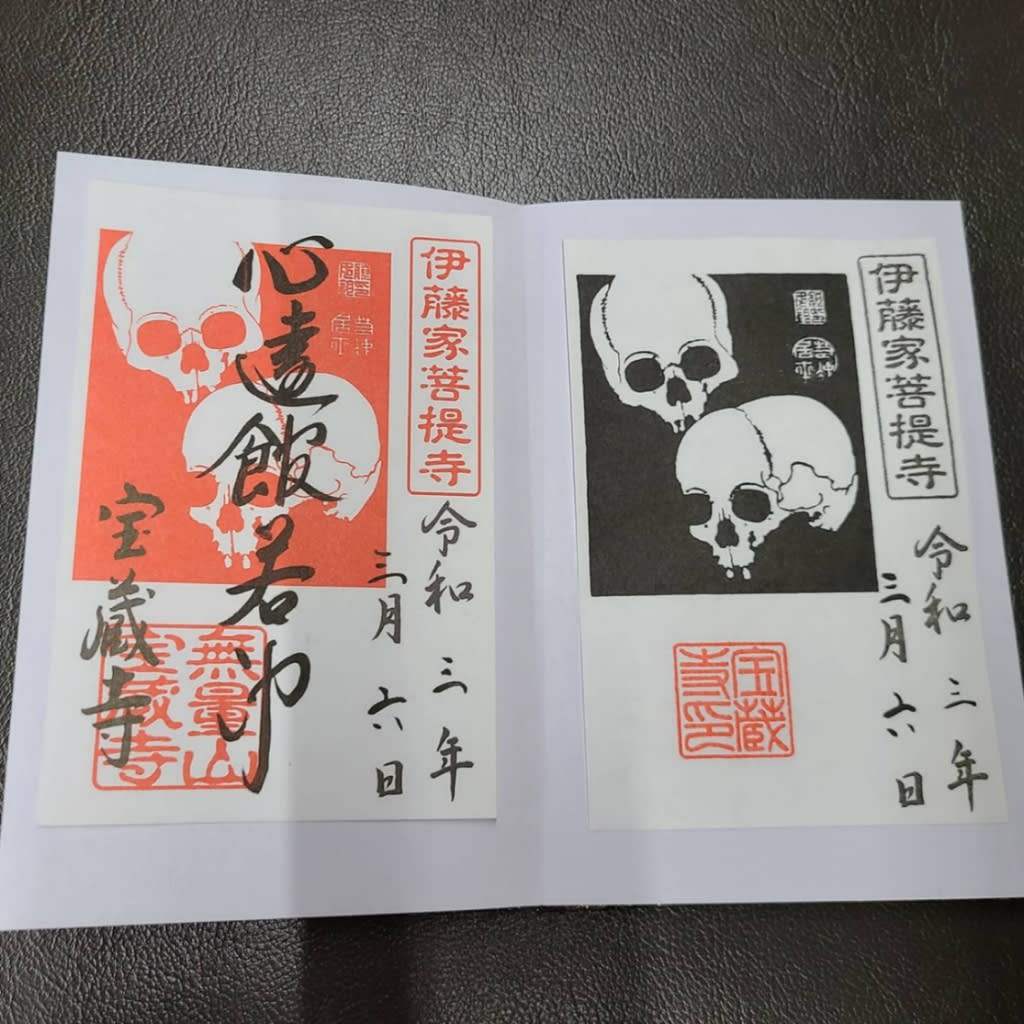 伊藤家菩提寺
令和三年
三月六日
心遠館若冲
宝蔵寺
無量山
宝蔵寺
若冲居士
伊藤家菩提寺
令和三年
三月六日
若冲居士
宝蔵寺印